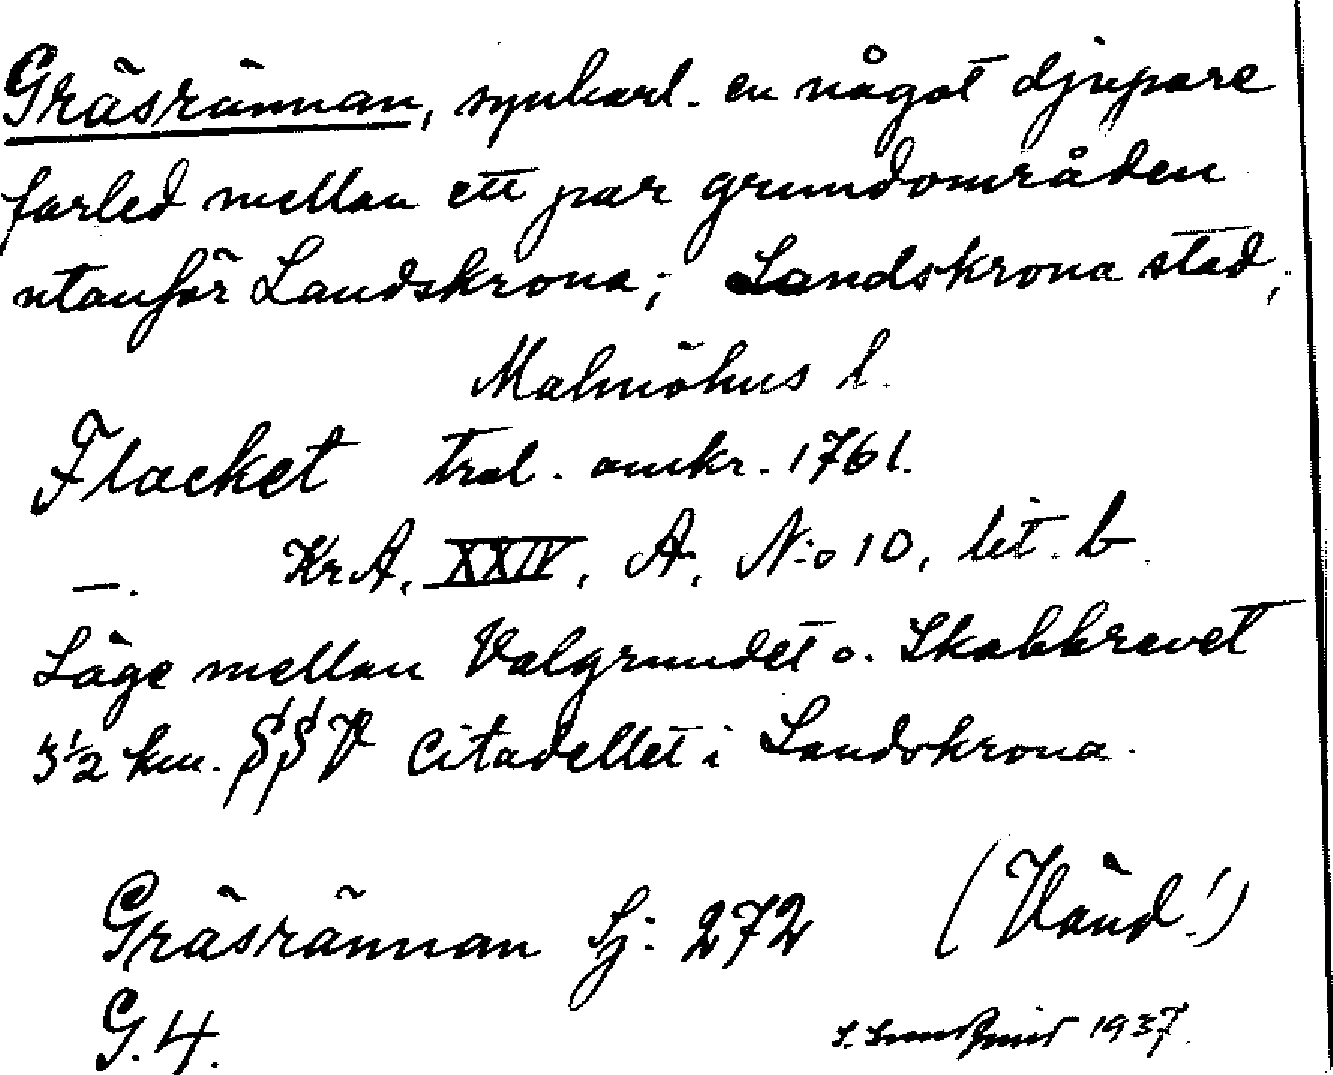 Gräsrännan, synkarl. en något djupare
farled mellan ett par grundområden
utanför Landskrona; Landskrona stad,
Malmöhus l.
Flacket trol. omkr. 1761.
—. KrA, XXIV, A, N:o 10, lit. b.
Läge mellan Valgrundet o. Skabbrevet
3½ km. V Citadellet i Landskrona.
Gräsrännan Sj: 272 (Vänd!)
G. 4. 1937.